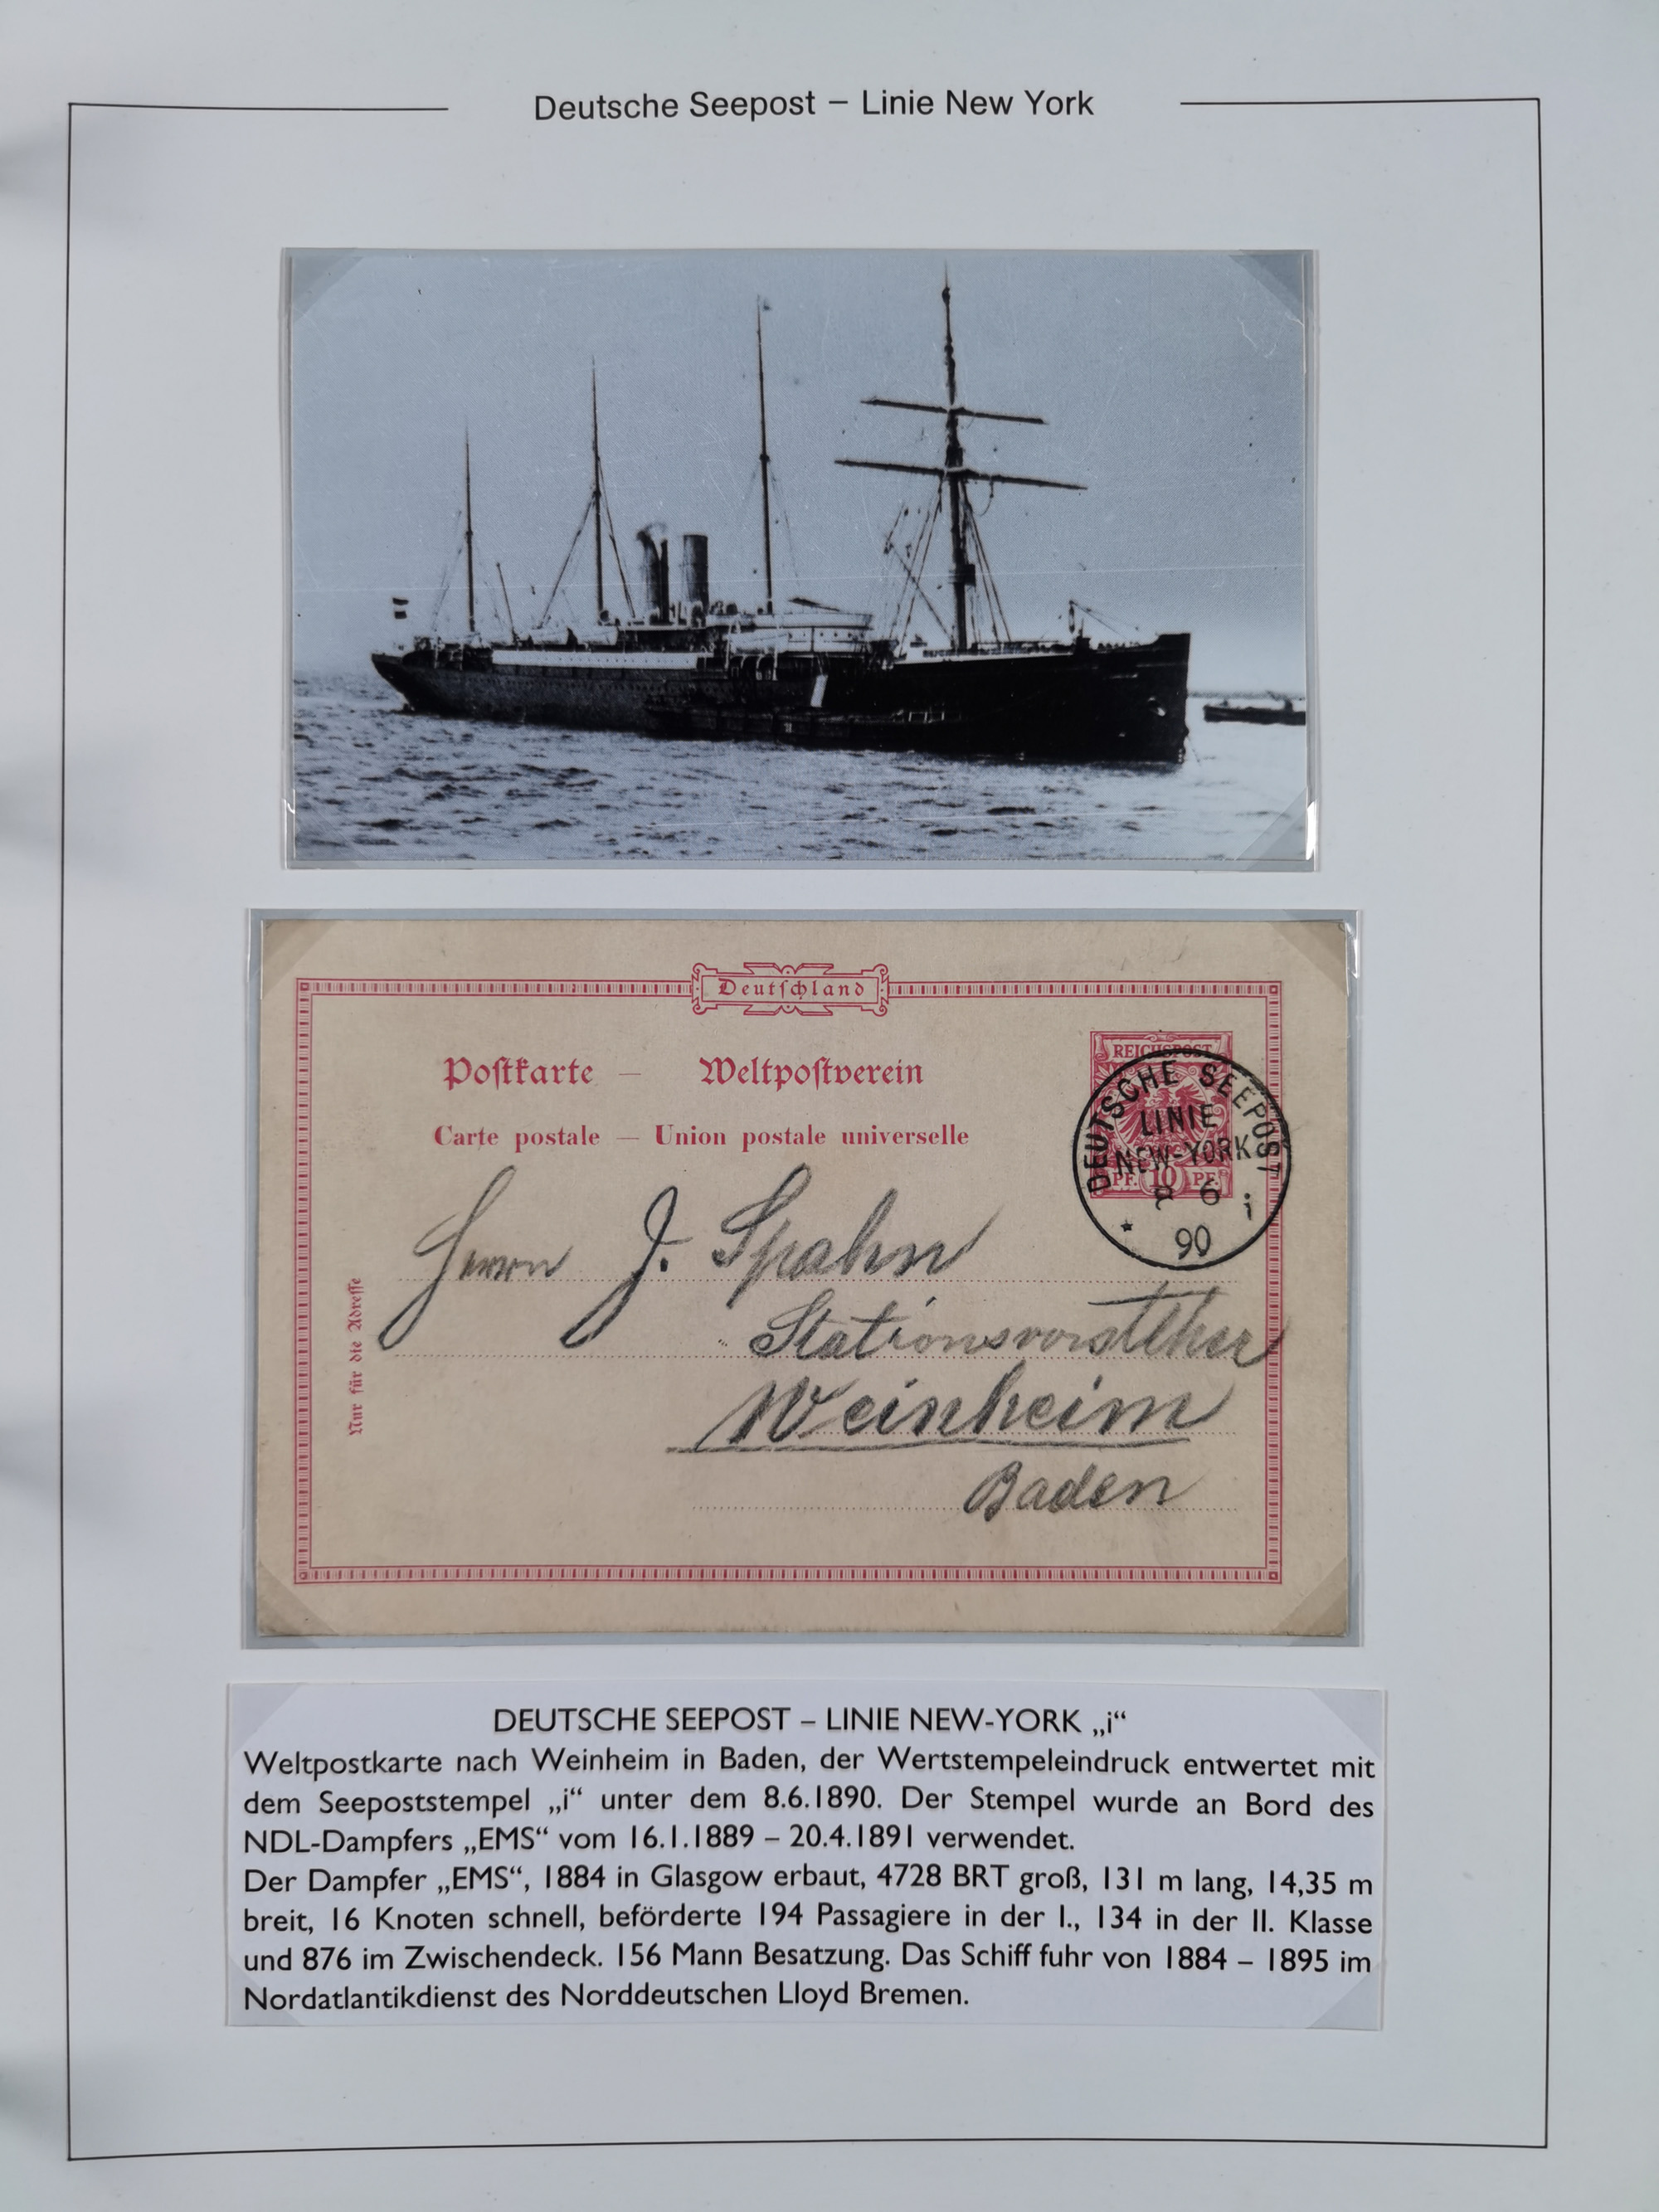 Deutsche Seepost – Linie New York
Deutſchland
Poſtkarte — Weltpoſtverein
Carte postale — Union postale universelle
REICHSPOST
PF. 10 PF.
DEUTSCHE SEEPOST
LINIE
NEW-YORK
8 6
i
* 90
Herrn J. Spahn
Stationsvorsteher
Weinheim
Baden
Nur für die Adreſſe
DEUTSCHE SEEPOST – LINIE NEW-YORK „i“
Weltpostkarte nach Weinheim in Baden, der Wertstempeleindruck entwertet mit
dem Seepoststempel „i“ unter dem 8.6.1890. Der Stempel wurde an Bord des
NDL-Dampfers „EMS“ vom 16.1.1889 – 20.4.1891 verwendet.
Der Dampfer „EMS“, 1884 in Glasgow erbaut, 4728 BRT groß, 131 m lang, 14,35 m
breit, 16 Knoten schnell, beförderte 194 Passagiere in der I., 134 in der II. Klasse
und 876 im Zwischendeck. 156 Mann Besatzung. Das Schiff fuhr von 1884 – 1895 im
Nordatlantikdienst des Norddeutschen Lloyd Bremen.